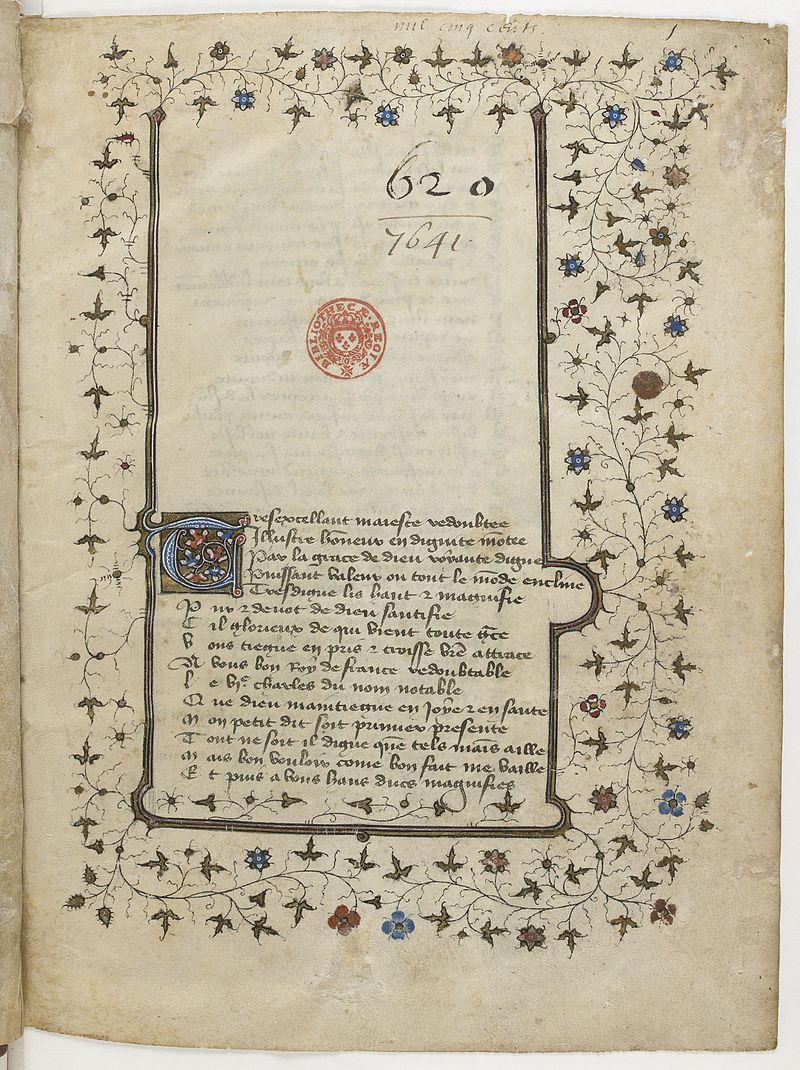 mil cinq cents
1
620
7641
BIBLIOTHECÆ REGIÆ
Tresexcellant maieste redoubtee
Illustre honneur en dignite montee
Par la grace de dieu royaute digne
Puissant valeur ou tout le mõde encline
Tresdigne lis hault & magnifie
Pur & devot de dieu santifie
Cil glorieux de qui vient toute gr̃ce
Vous tiegne en pris & croisse vr̃e attrace
A vous bon Roy de france redoubtable
Le vi.e charles du nom notable
Que dieu maintiegne en joye & en sante
Mon petit dit soit primier presente
Tout ne soit il digne que͂ tels mai͂s aille
Mais bon vouloir come bon fait me vaille
Et puis a vous haus ducs magnifies